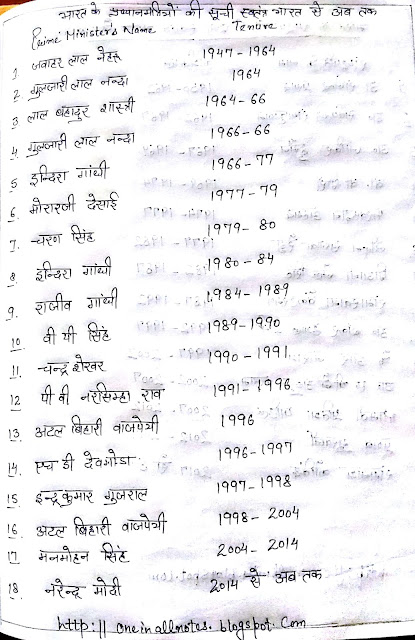 भारत के प्रधानमंत्रियों की सूची स्वतंत्र भारत से अब तक
Prime Minister's Name Tenure
1 जवाहर लाल नेहरू 1947-1964
2 गुलजारी लाल नन्दा 1964
3 लाल बहादुर शास्त्री 1964-66
4. गुलजारी लाल नन्दा 1966-66
5 इन्दिरा गांधी 1966-77
6. मोरारजी देसाई 1977-79
7. चरण सिंह 1979-80
8 इन्दिरा गांधी 1980-84
9. राजीव गांधी 1984-1989
10. वी पी सिंह 1989-1990
11. चन्द्र शेखर 1990-1991
12 पी वी नरसिम्हा राव 1991-1996
13. अटल बिहारी वाजपेयी 1996
14. एच डी देवगौडा 1996-1997
15 इन्द्र कुमार गुजराल 1997-1998
16. अटल बिहारी वाजपेयी 1998-2004
17 मनमोहन सिंह 2004-2014
18 नरेन्द्र मोदी 2014 से अब तक
http://oneinallnotes.blogspot.com